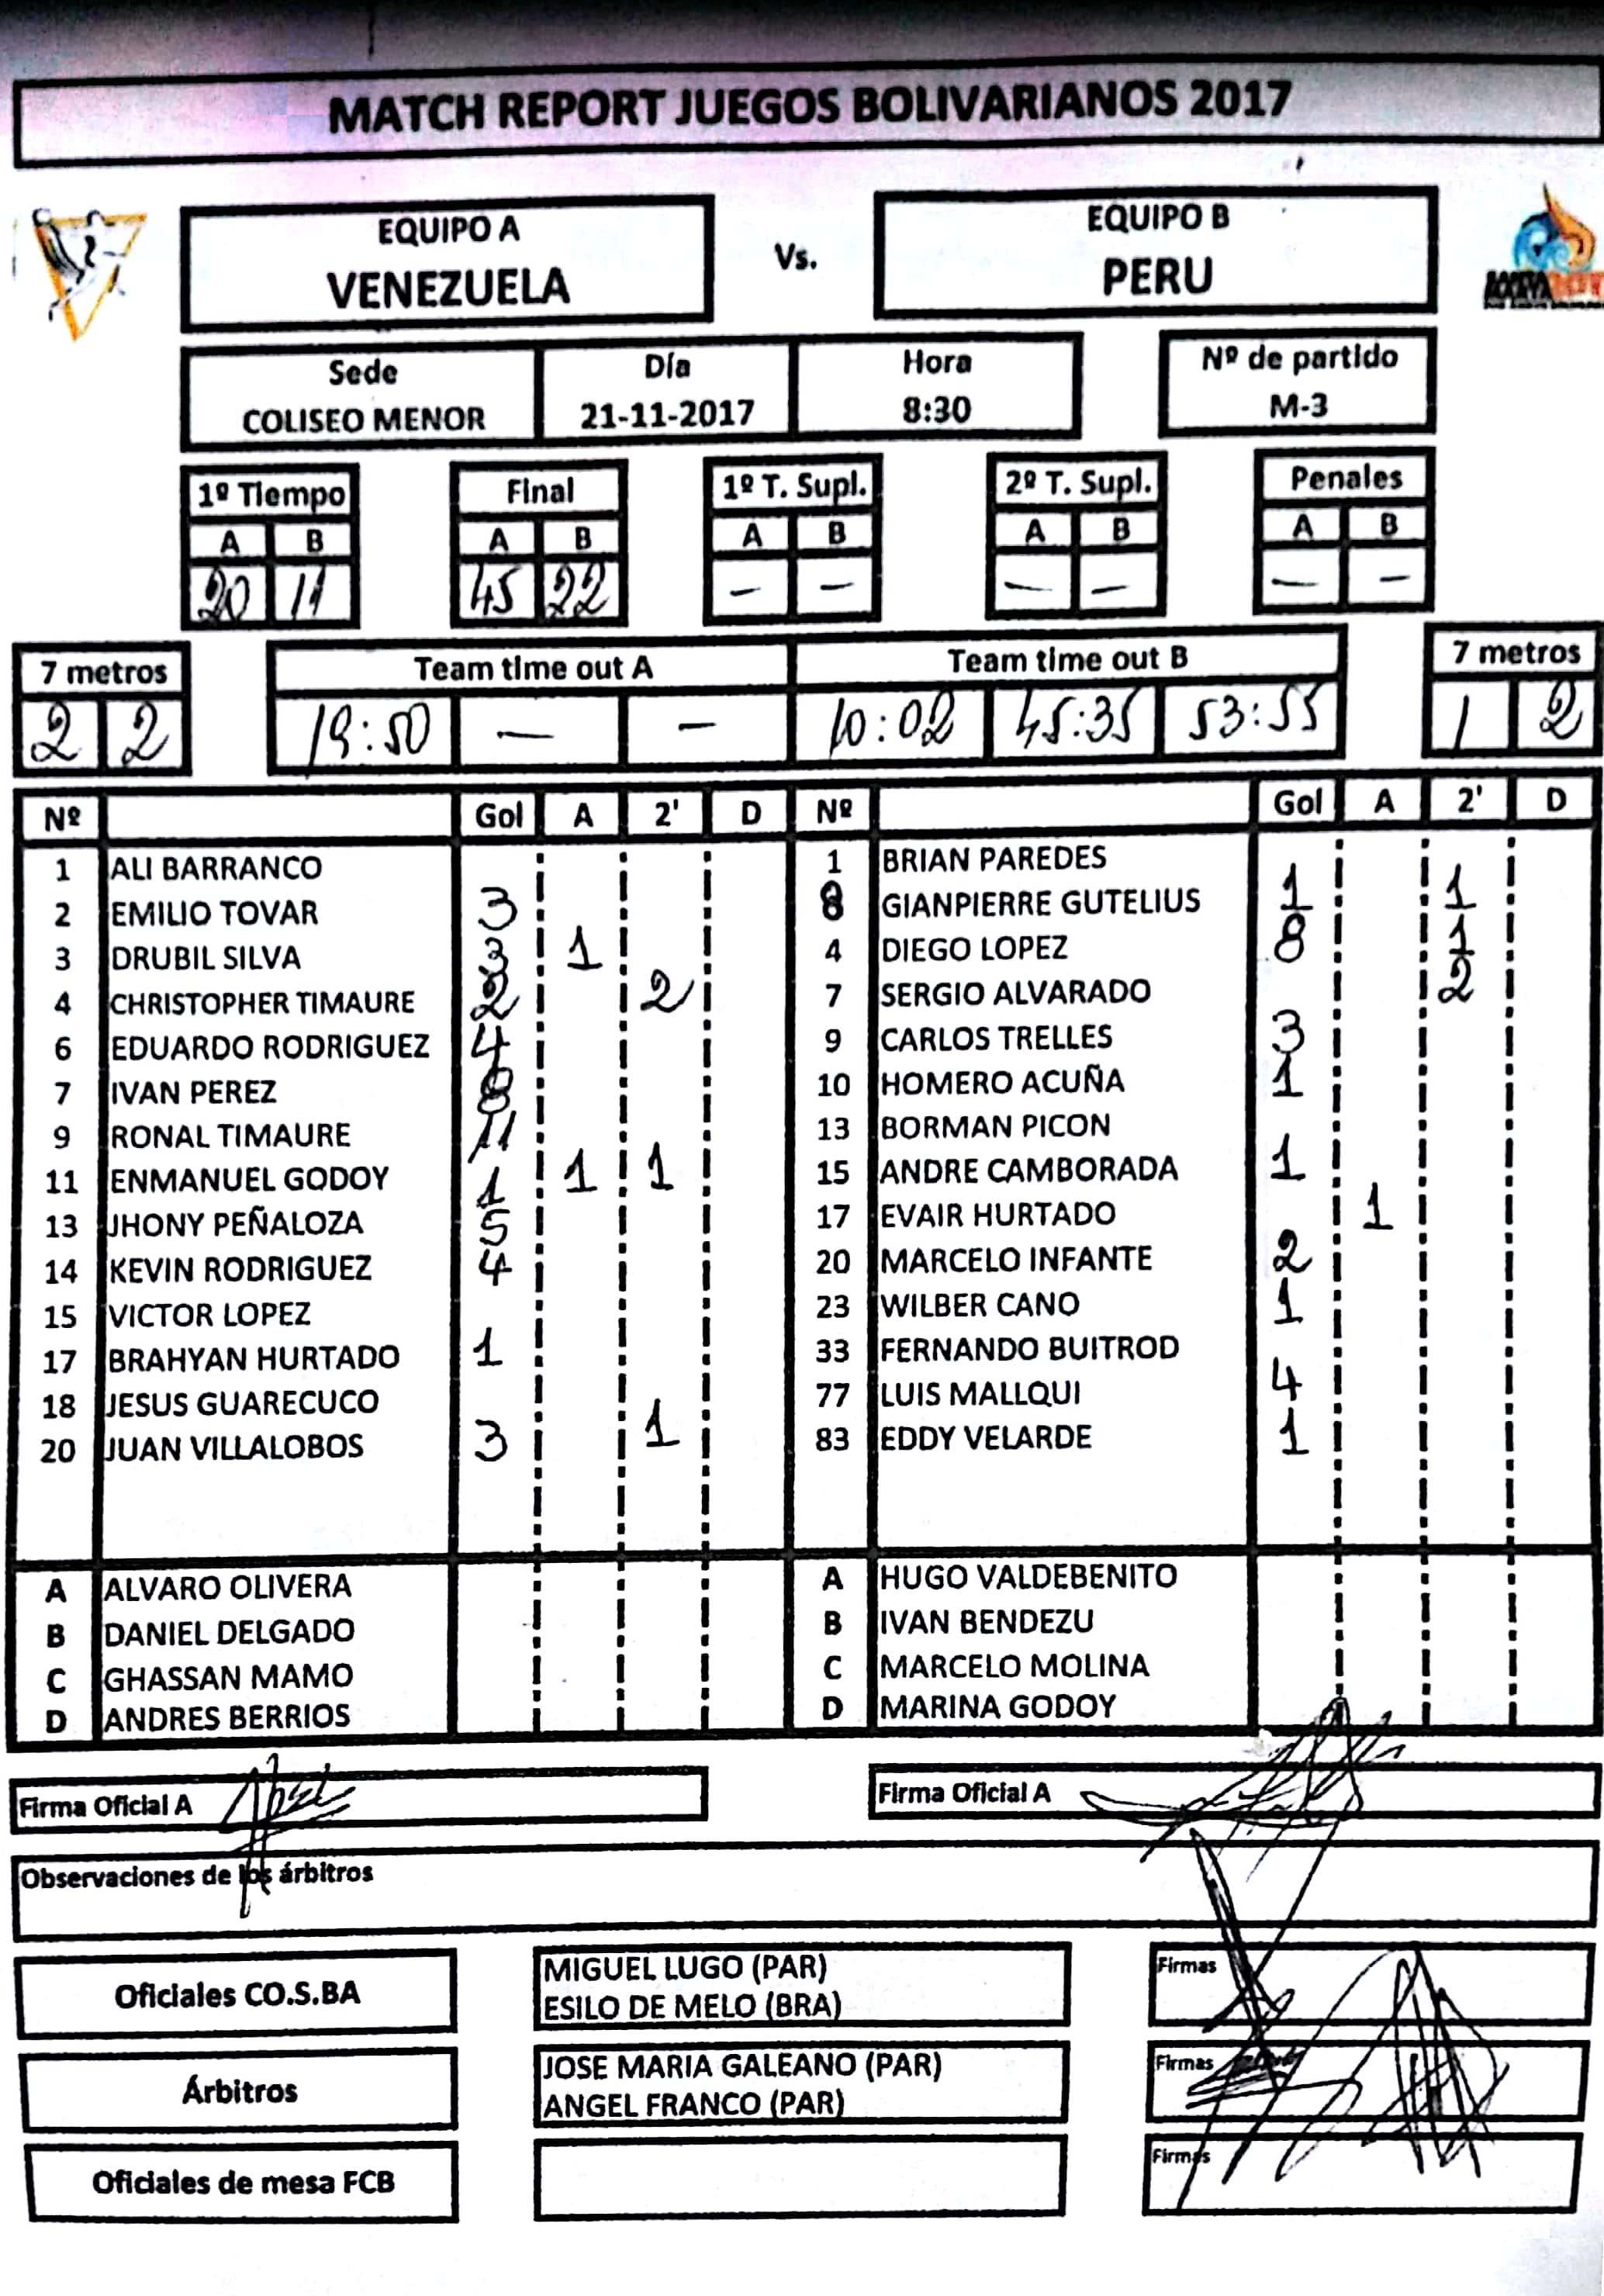 MATCH REPORT JUEGOS BOLIVARIANOS 2017
EQUIPO A
VENEZUELA
Vs.
EQUIPO B
PERU
Sede
COLISEO MENOR
Día
21-11-2017
Hora
8:30
Nº de partido
M-3
1º Tiempo Final 1º T. Supl. 2º T. Supl. Penales
A B A B A B A B A B
20 11 45 22 — — — — — —
7 metros Team time out A Team time out B 7 metros
2 2 19:50 — — 10:02 45:35 53:55 1 2
Nº Gol A 2' D Nº Gol A 2' D
1 ALI BARRANCO 1 BRIAN PAREDES
2 EMILIO TOVAR 3 8 GIANPIERRE GUTELIUS 1 1
3 DRUBIL SILVA 3 1 4 DIEGO LOPEZ 8 1
4 CHRISTOPHER TIMAURE 2 2 7 SERGIO ALVARADO 2
6 EDUARDO RODRIGUEZ 4 9 CARLOS TRELLES 3
7 IVAN PEREZ 8 10 HOMERO ACUÑA 1
9 RONAL TIMAURE 11 13 BORMAN PICON
11 ENMANUEL GODOY 1 1 1 15 ANDRE CAMBORADA 1
13 JHONY PEÑALOZA 5 17 EVAIR HURTADO 1
14 KEVIN RODRIGUEZ 4 20 MARCELO INFANTE 2
15 VICTOR LOPEZ 23 WILBER CANO 1
17 BRAHYAN HURTADO 1 33 FERNANDO BUITROD
18 JESUS GUARECUCO 77 LUIS MALLQUI 4
20 JUAN VILLALOBOS 3 1 83 EDDY VELARDE 1
A ALVARO OLIVERA A HUGO VALDEBENITO
B DANIEL DELGADO B IVAN BENDEZU
C GHASSAN MAMO C MARCELO MOLINA
D ANDRES BERRIOS D MARINA GODOY
Firma Oficial A Firma Oficial A
Observaciones de los árbitros
Oficiales CO.S.BA
MIGUEL LUGO (PAR)
ESILO DE MELO (BRA)
Firmas
Árbitros
JOSE MARIA GALEANO (PAR)
ANGEL FRANCO (PAR)
Firmas
Oficiales de mesa FCB
Firmas